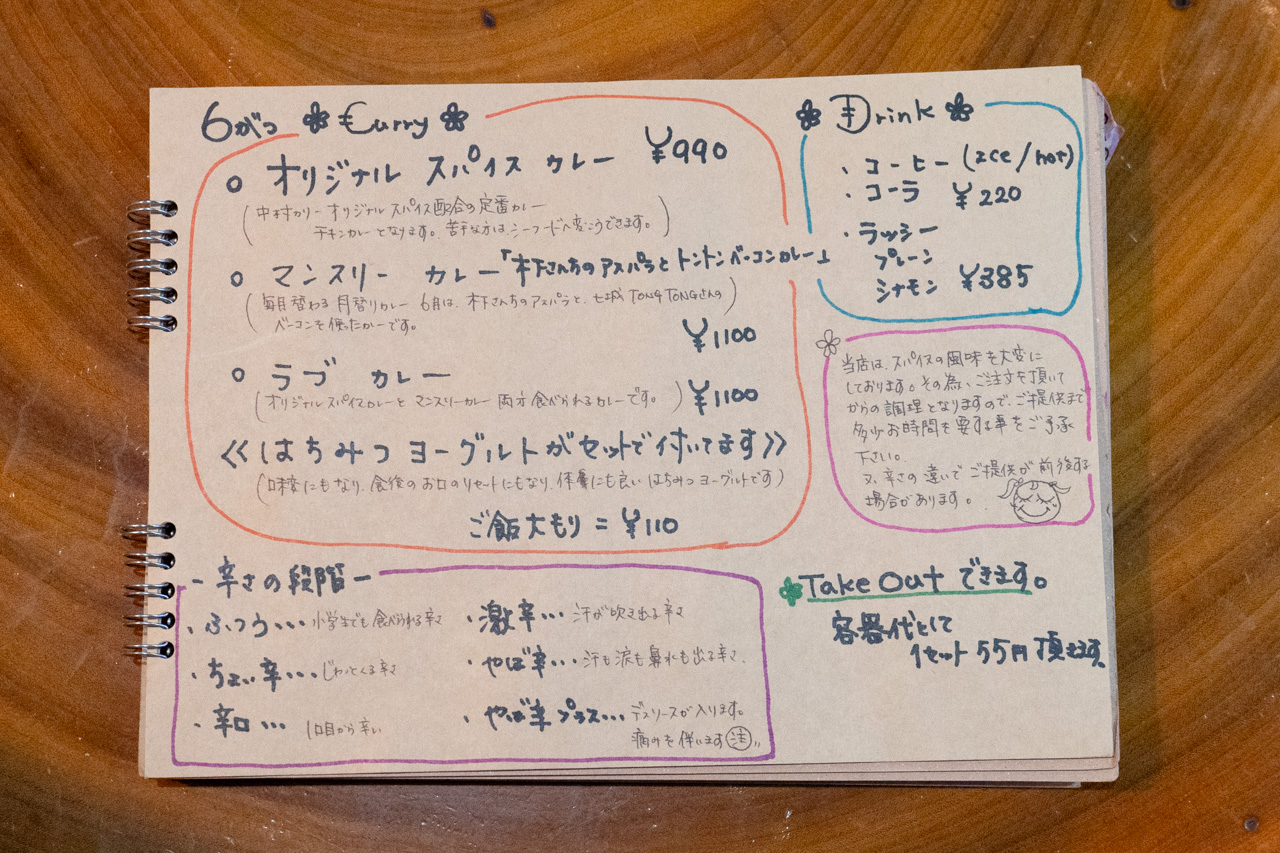 6がつ Curry
○ オリジナル スパイス カレー ¥990
(中村カリーオリジナルスパイス配合の定番カレー
チキンカレーとなります。苦手な方は、シーフードへ変こうできます。)
○ マンスリー カレー「木下さんちのアスパラとトントンベーコンカレー」
(毎月替わる月替りカレー 6月は、木下さんちのアスパラと、七城TONGTONGさんの
ベーコンを使ったカレーです。)
¥1100
○ ラブ カレー
(オリジナルスパイスカレーとマンスリーカレー両方食べられるカレーです。) ¥1100
《はちみつヨーグルトがセットで付いてます》
(味変にもなり、食後のお口のリセットにもなり、体にも良いはちみつヨーグルトです)
ご飯大もり=¥110
Drink
・コーヒー(ice/hot)
・コーラ ¥220
・ラッシー
プレーン
シナモン ¥385
当店は、スパイスの風味を大変に
しております。その為、ご注文を頂いて
からの調理となりますので、ご提供まで
多少お時間を要する事をご了承
下さい。
又、辛さの違いでご提供が前後する
場合があります。
-辛さの段階-
・ふつう・・・小学生でも食べられる辛さ
・ちょい辛・・・じわっとくる辛さ
・辛口・・・1口目から辛い
・激辛・・・汗が吹き出る辛さ
・やば辛・・・汗も涙も鼻水も出る辛さ、
・やば辛プラス・・・デスソースが入ります。
痛みを伴います㊟
Take Out できます。
容器代として
1セット55円頂きます。